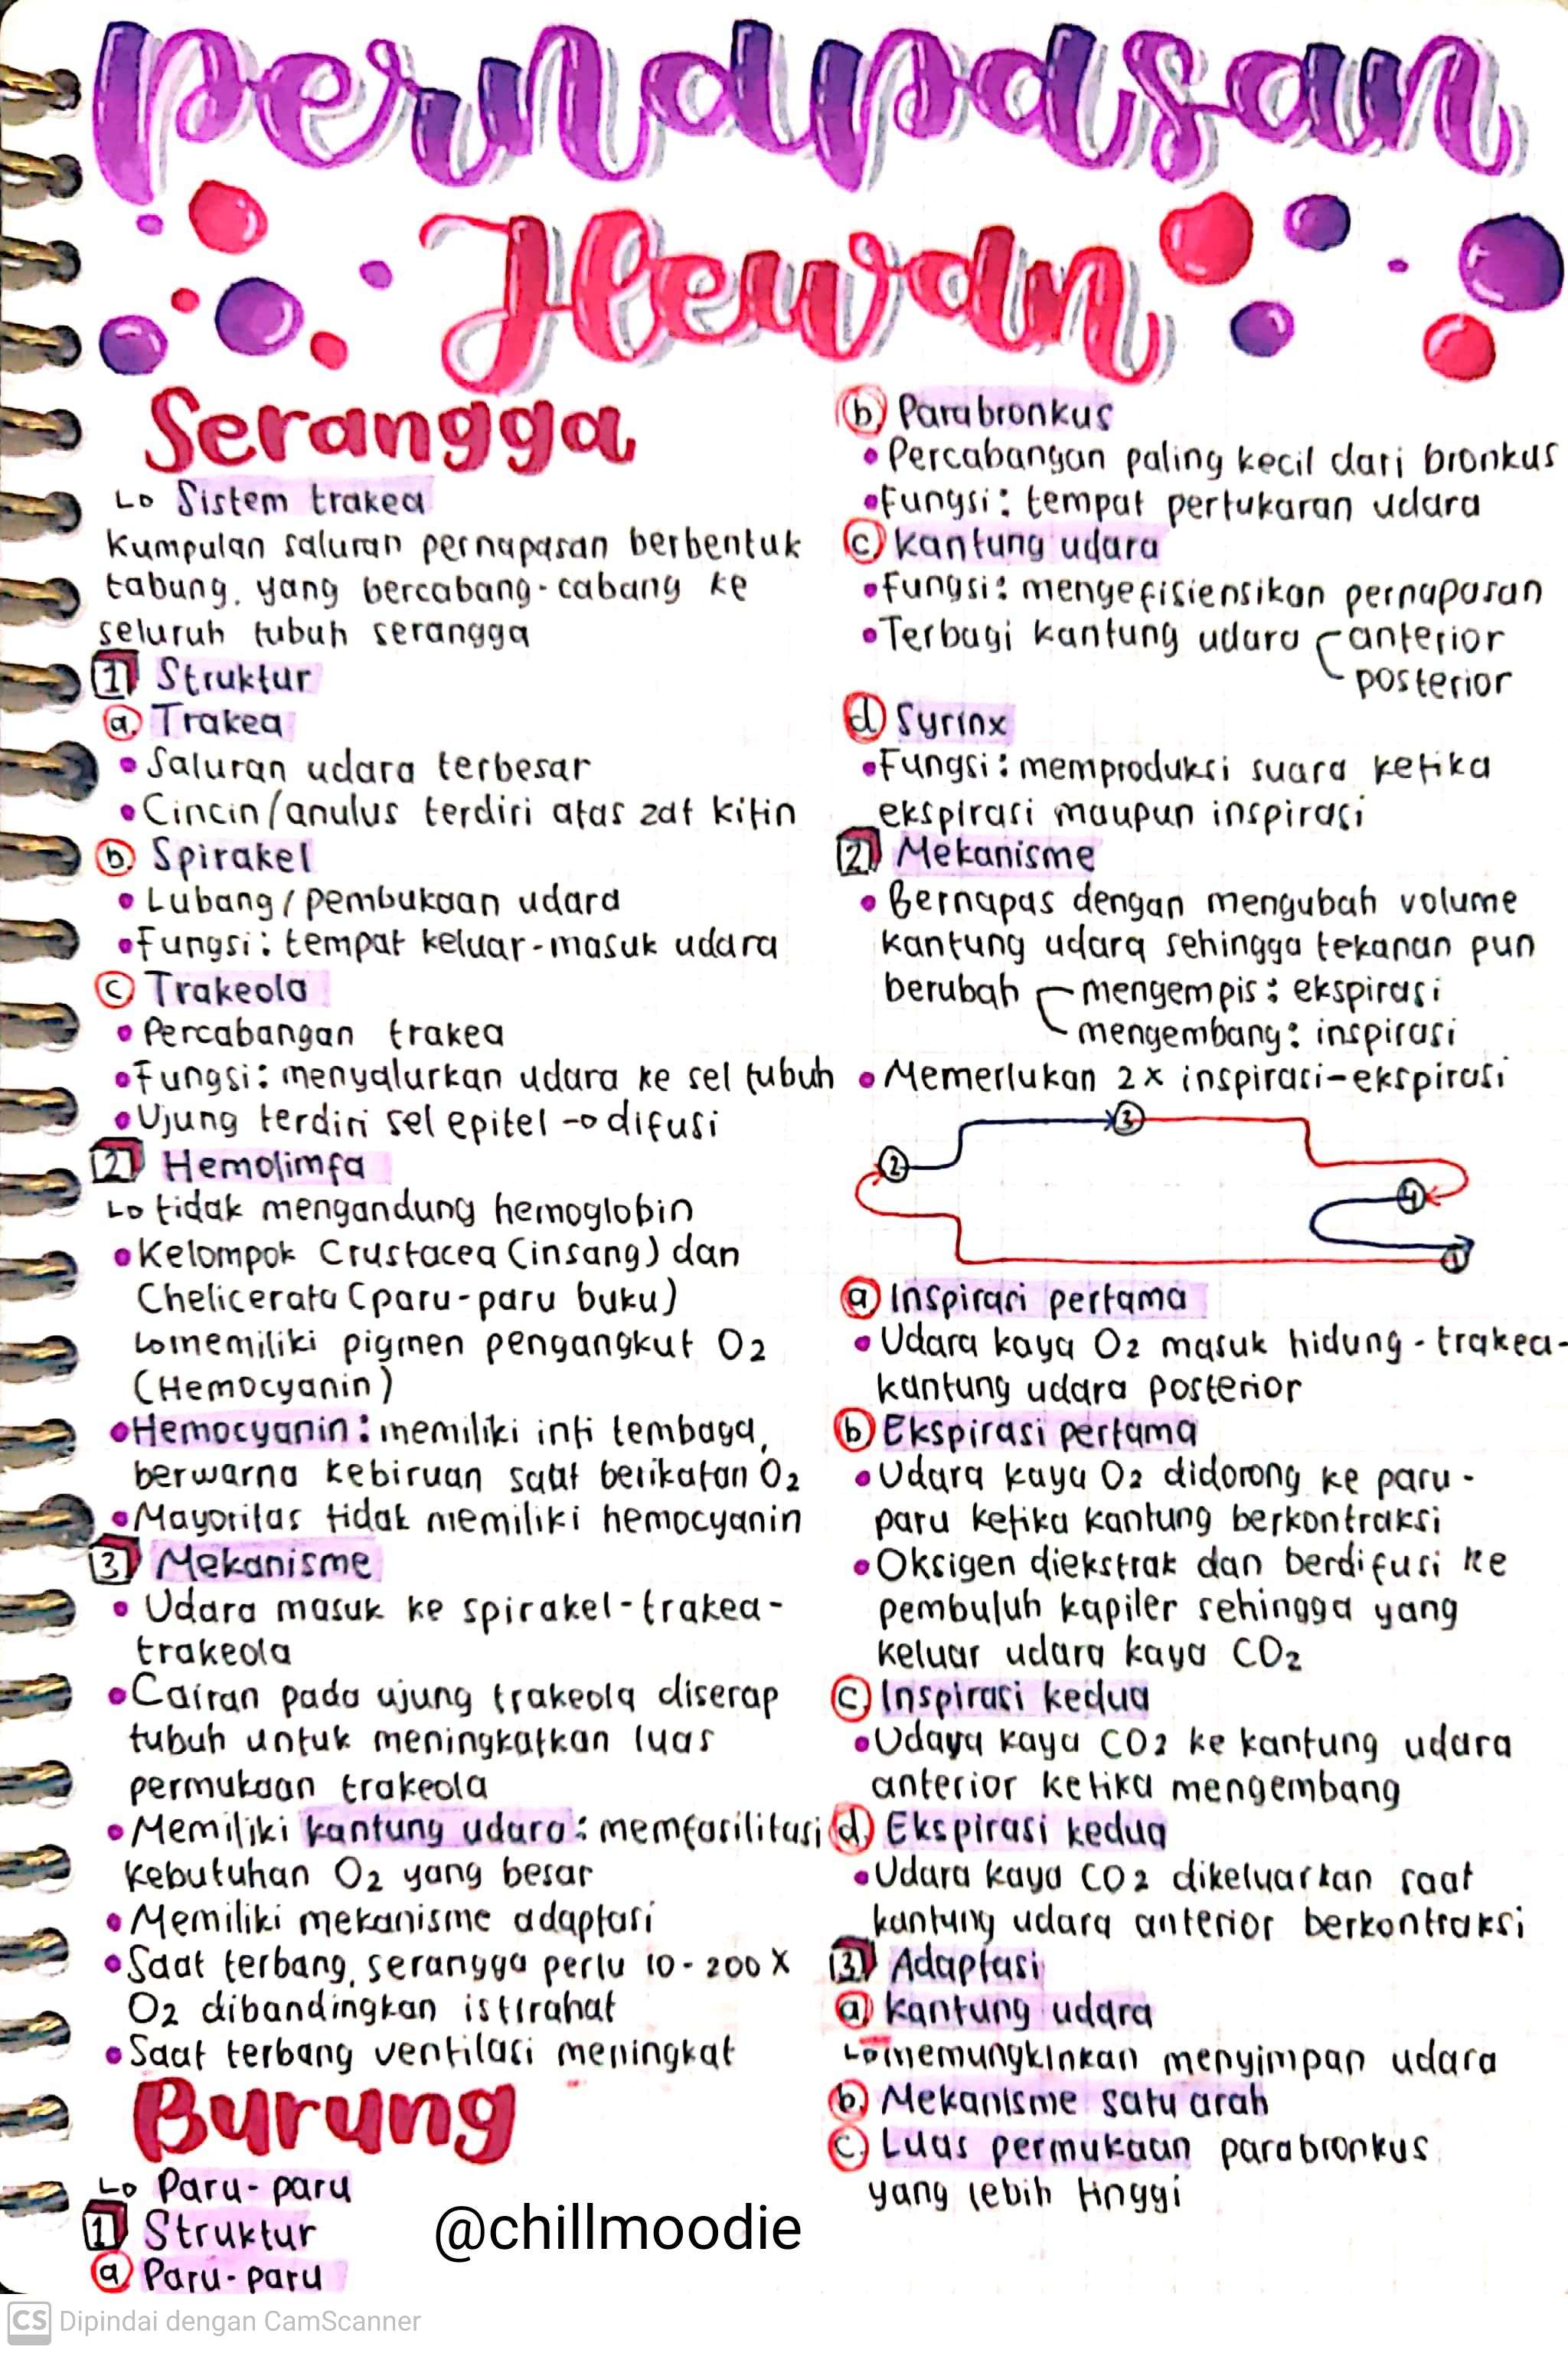 Pernapasan
Hewan
Serangga
↳ Sistem trakea
Kumpulan saluran pernapasan berbentuk
tabung, yang bercabang-cabang ke
seluruh tubuh serangga
1 Struktur
a. Trakea
• Saluran udara terbesar
• Cincin/anulus terdiri atas zat kitin
b. Spirakel
• Lubang/pembukaan udara
• Fungsi: tempat keluar-masuk udara
c Trakeola
• Percabangan trakea
• Fungsi: menyalurkan udara ke sel tubuh
• Ujung terdiri sel epitel → difusi
2 Hemolimfa
↳ tidak mengandung hemoglobin
• Kelompok Crustacea (insang) dan
Chelicerata (paru-paru buku)
↳ memiliki pigmen pengangkut O2
(Hemocyanin)
• Hemocyanin: memiliki inti tembaga,
berwarna kebiruan saat berikatan O2
• Mayoritas tidak memiliki hemocyanin
3 Mekanisme
• Udara masuk ke spirakel-trakea-
trakeola
• Cairan pada ujung trakeola diserap
tubuh untuk meningkatkan luas
permukaan trakeola
• Memiliki kantung udara: memfasilitasi
kebutuhan O2 yang besar
• Memiliki mekanisme adaptasi
• Saat terbang, serangga perlu 10-200 X
O2 dibandingkan istirahat
• Saat terbang ventilasi meningkat
Burung
↳ Paru-paru
1 Struktur
a Paru-paru
b Parabronkus
• Percabangan paling kecil dari bronkus
• Fungsi: tempat pertukaran udara
c Kantung udara
• Fungsi: mengefisiensikan pernapasan
• Terbagi kantung udara anterior
posterior
d Syrinx
• Fungsi: memproduksi suara ketika
ekspirasi maupun inspirasi
2 Mekanisme
• Bernapas dengan mengubah volume
kantung udara sehingga tekanan pun
berubah mengempis: ekspirasi
mengembang: inspirasi
• Memerlukan 2x inspirasi-ekspirasi
3
2
4
1
a Inspirasi pertama
• Udara kaya O2 masuk hidung-trakea-
kantung udara posterior
b Ekspirasi pertama
• Udara kaya O2 didorong ke paru-
paru ketika kantung berkontraksi
• Oksigen diekstrak dan berdifusi ke
pembuluh kapiler sehingga yang
keluar udara kaya CO2
c Inspirasi kedua
• Udaya kaya CO2 ke kantung udara
anterior ketika mengembang
d. Ekspirasi kedua
• Udara kaya CO2 dikeluarkan saat
kantung udara anterior berkontraksi
3 Adaptasi
a kantung udara
↳ memungkinkan menyimpan udara
b. Mekanisme satu arah
c. Luas permukaan parabronkus
yang lebih tinggi
@chillmoodie
CS Dipindai dengan CamScanner